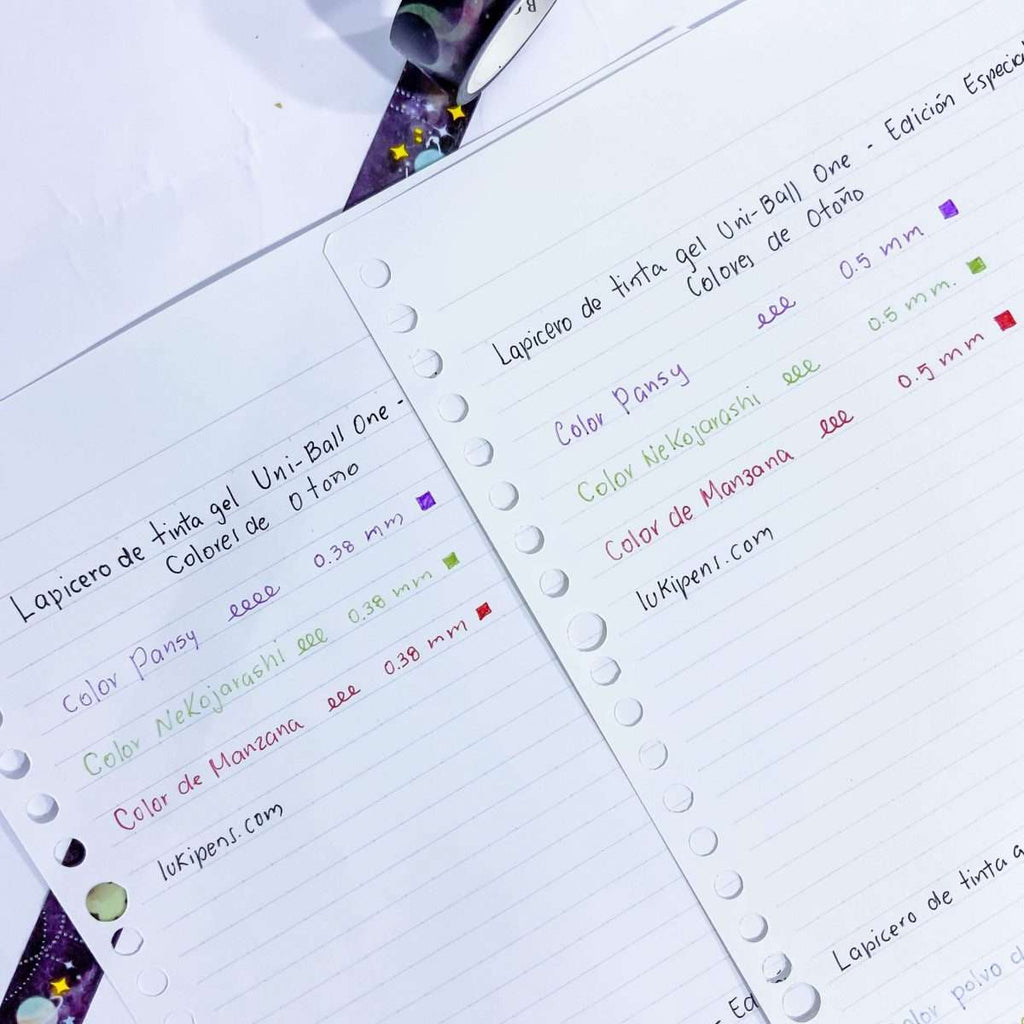 Lapicero de tinta gel Uni-Ball One -
Colores de Otoño
Color Pansy eeee 0.38 mm
Color Nekojarashi eee 0.38 mm
Color de Manzana eee 0.38 mm
lukipens.com
- Ed
Lapicero de tinta gel Uni-Ball One - Edición Especial
Colores de Otoño
Color Pansy eee 0.5 mm
Color Nekojarashi eee 0.5 mm.
Color de Manzana eee 0.5 mm
lukipens.com
Lapicero de tinta
polvo